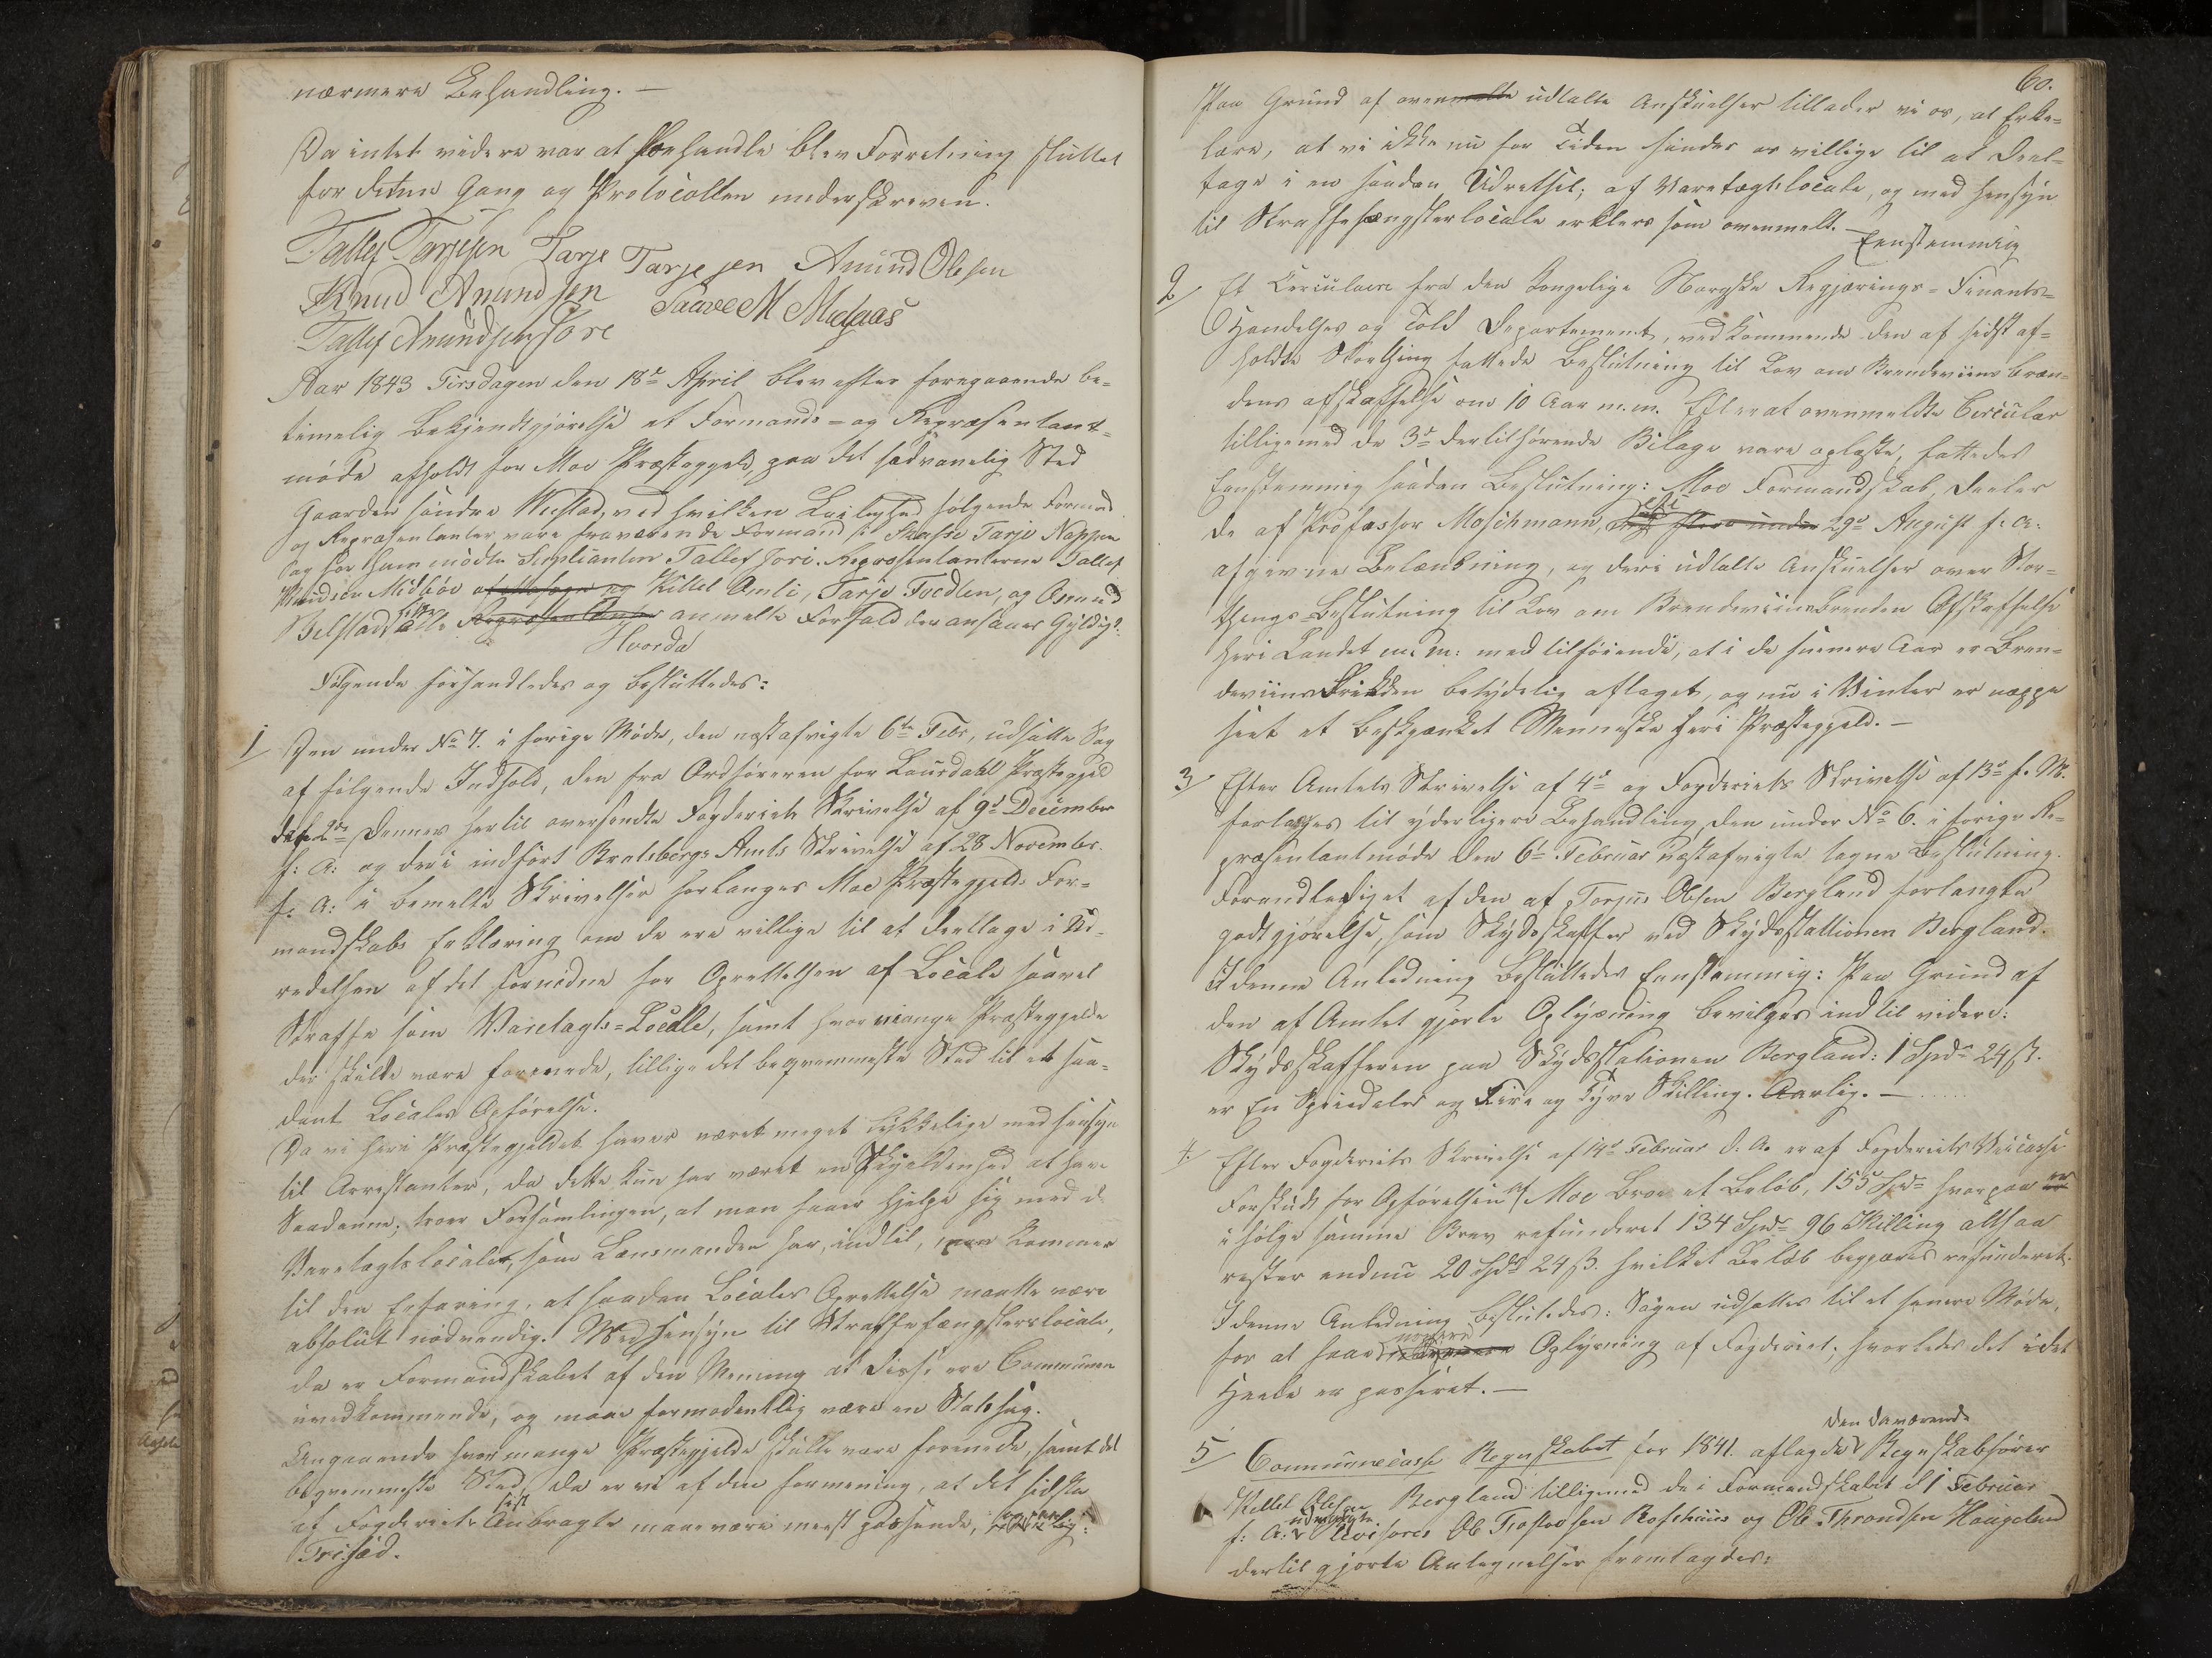 nærmere Behandling. —
Da intet videre var at forhandle blev Forretning sluttet
for denne Gang og Protocollen underskreven.
Tallef Tarjesen Tarje Tarjesen Anund Olesen
Knud Anundsen Saave M Midgaas
Tallef Anundsen Jore
Aar 1843 Tirsdagen den 18de April blev efter foregaaende be-
timelig Bekjendtgjørelse et Formands- og Repræsentant-
møde afholdt for Moe Præstegjeld, paa det sædvanelig Sted
Gaarden søndre Nestad, ved hvilken Leilighed følgende Formænd
og Repræsentanter vare fraværende Formænd Tarje Nappen
og for ham mødte Suplianten Tallef Jori. Repræsentanterne Tallef
Knudsen Midbøe Kittel Omli, Tarje Tvedten, og Osmund
alle anmelte Forfald der ansaaes Gyldigt.
Hvorda
Følgende forhandledes og besluttedes:
1/ Den under No 7. i forrige Møde, den næstafvigte 6te Febr, udsatte Sag
af følgende Indhold, den fra Ordføreren for Laurdahl Præstegjeld
2den Dennes hertil oversendte Fogderiets Skrivelse af 9de December
f: A: og deri indført Bratsbergs Amts Skrivelse af 28 November
f. A: i bemelte Skrivelser forlanges Moe Præstegjelds For-
mandskabs Erklæring om de ere villige til at deeltage i Ud-
redelsen af det fornødne for Oprettelsen af Locale saavel
Straffe som Varetægts-Locale, samt hvor mange Præstegjelde
der skulde være forenede, tillige det beqvemmeste Sted til et saa-
dant Locales Opførelse.
Da vi heri Præstegjeldet haver været meget lykkelige med hensyn
til Arrestanter, da dette kun har været en Sjeldenhed at have
Saadanne; troer Forsamlingen, at man faaer hjelpe sig med de
Varetægtslocaler, som Lænsmanden har, indtil, man kommer
til den Erfaring, at saadan Locales Oprettelse maatte være
absolut nødvendig. Med Hensyn til Straffefængselslocale,
da er Formandskabet af den Mening at disse ere Communen
uvedkommende, og maae formodentlig være en Statssag.
Angaaende hvor mange Præstegjelde skulle være forenede, samt det
beqvemmeste Sted, da er vi af den formening, at det sidste
af Fogderiet Anbragte maae være meest passende,
Triset.
60.
Paa Grund af oven udtalte Anskuelser tillader vi os, at Erkla-
lære, at vi ikke nu for Tiden finder os villige til at deel-
tage i en saadan Udredsel; af Varetægtslocale, og med Hensyn
til Straffefængselslocale erklæres som ovenmelt. —
Eenstemmig
2/ Et Circulaire fra den Kongelige Norgske Regjærings- Finants-
Handelses og Told Departement, vedkommende den af sidst af-
holdte Storthing fattede Beslutning til Lov om Brendeviins bræn-
dens afskaffelse om 10 Aar m.m. Efterat ovenmeldte Circulær
tilligemed de 3de dertilhørende Bilage vare oplæste, fattedes
Eenstemmig saadan Beslutning: Moe Formandskab, deeler
de af Professor Moschmann, 29de August f: A:
afgivne Betænkning, og deri udtalte Anskuelser over Stor-
things-Beslutning til Lov om Brendeviinsbrænden Afskaffelse
heri Landet m: m: med tilføiende, at i de senere Aar er Bren-
deviinsDrikken betydelig aftaget, og nu i Vinter er neppe
seet et beskjænket Menneske heri Præstegjeld. —
3/ Efter Amtets Skrivelse af 4de og Fogderiets Skrivelse af 13de f. M.
forlanges til yderligere Behandling, den under No 6. i forige Re-
præsentantmøde den 6te Februar næstafvigte tagne Beslutning.
Forandledizet af den af Torjus Olsen Bergland forlangte
godtgjørelse, som Skydsskaffer ved Skydsstationen Bergland.
I denne Anledning besluttedes Eenstemmig: Paa Grund af
den af Amtet gjorte Oplysning bevilges indtil videre:
Skydsskafferen paa Skydsstationen Bergland: 1 Spd 24 ß.
er En Speciedaler og Fire og Tyve Skilling. Aarlig. —
4. Efter Fogderiets Skrivelse af 14de Februar d. A. er af Fogderiets Veicasse
Forskudt for Opførelsen af Moe Broe et Beløb, 155 Spd hvorpaa er
i følge samme Brev refunderet 134 Spd 96 Skilling altsaa
rester endnu 20 Spd 24 ß. hvilket Beløb begjæres refunderet.
I denne Anledning beslutedes: Sagen udsættes til et senere Møde,
for at faae nærmere Oplysning af Fogderiet, hvorledes det i det
Heele er passeret. —
5/ Communecasse Regnskabet for 1841. aflagde den daværende Regnskabsfører
Kittel Olesen Bergland tilligemed de i Formandskabet d 1 Februar
f: A: udvalgte Revisores Ole Trostvosen Roshuus og Ole Throndsen Haugelund
dertil gjorte Antegnelser fremlagdes: